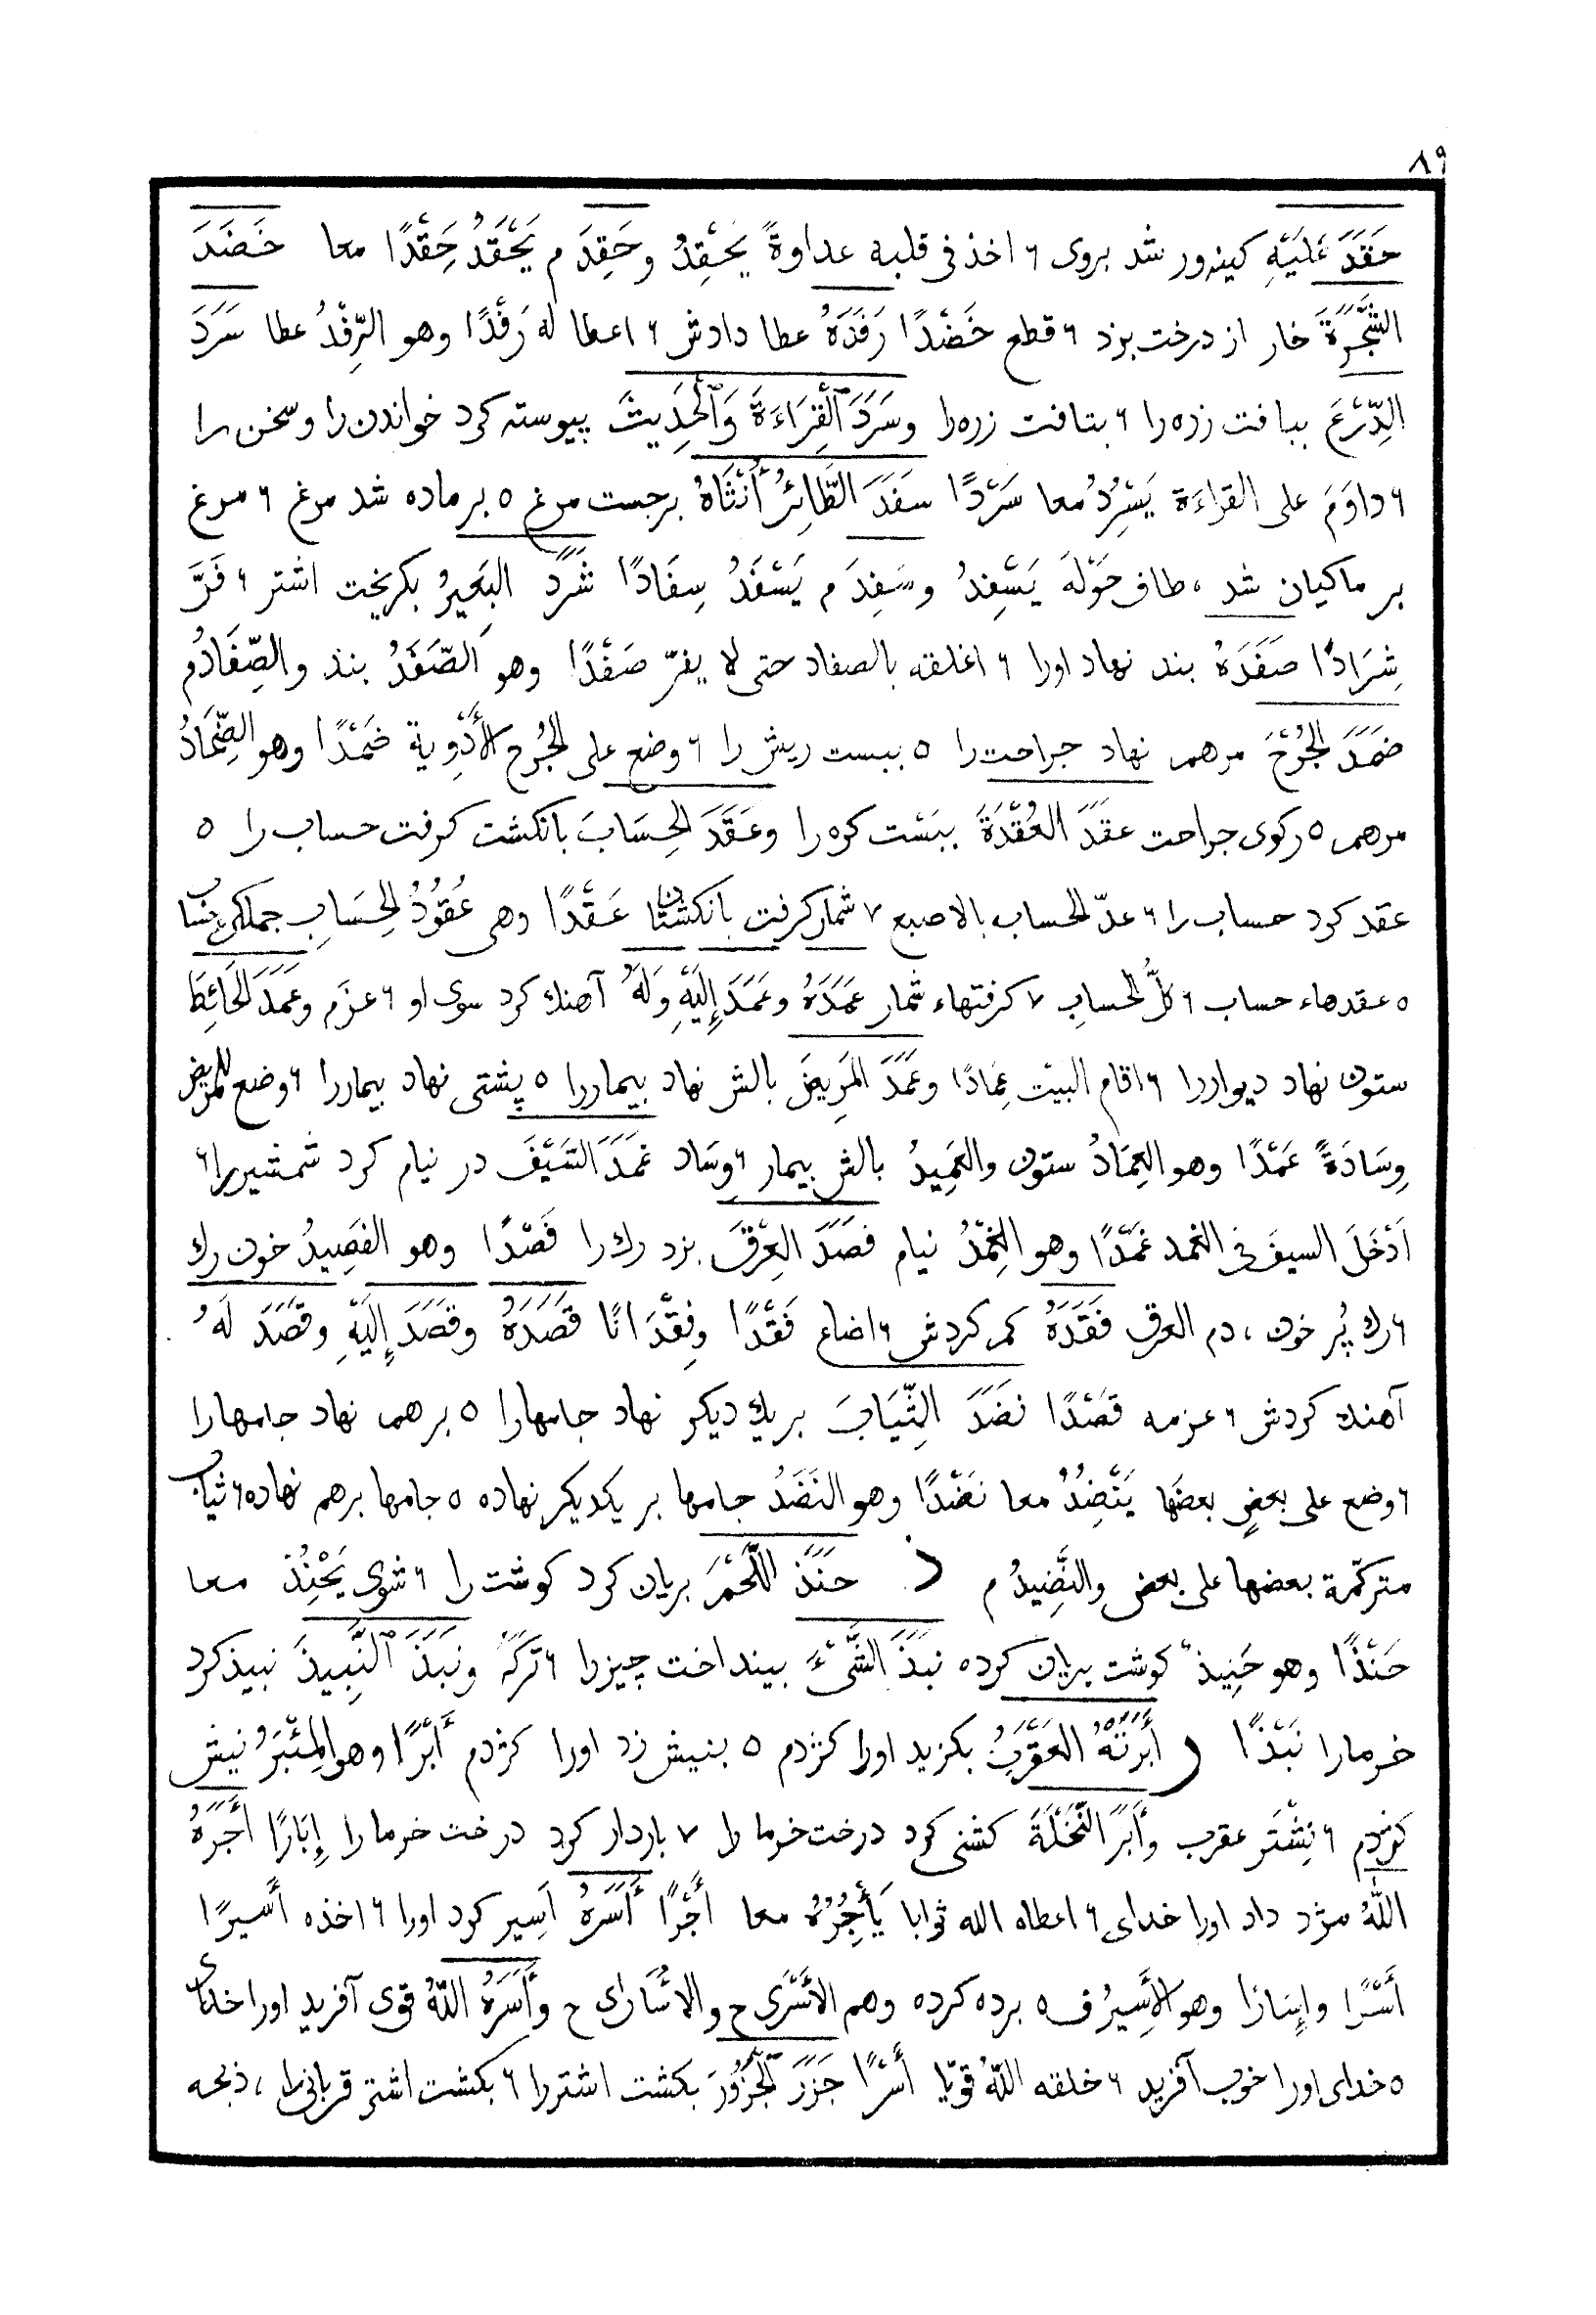 ٨٩
حَقَدَ عَلَيْهِ كينه‌ور شد بروى ٦ اخذ فى قلبه عداوةً يَحْقِدُ وحَقِدَ م يَحْقَدُ حِقْدًا معا خَضَدَ
الشَّجَرَةَ خار از درخت بزد ٦ قطع خَضْدًا رَفَدَهُ عطا دادش ٦ اعطا له رَفْدًا وهو الرِّفْدُ عطا سَرَدَ
الدِّرْعَ ببافت زره را ٦ بتافت زره را وسَرَدَ الْقِرَاءَةَ وَالْحَدِيثَ پيوسته كرد خواندن را وسخن را
٦ داوَمَ على القراءَة يَسْرِدُ معا سَرْدًا سَفَدَ الطَّائِرُ أُنْثَاهُ برجست مرغ ٥ بر ماده شد مرغ ٦ مرغ
بر ماكيان شد ، طاف حَوْلَهَ يَسْفِدُ وسَفِدَ م يَسْفَدُ سِفَادًا شَرَدَ البَعِيرُ بكريخت اشتر ٦ فَرَّ
شِرَادًا صَفَدَهُ بند نهاد اورا ٦ اغلقه بالصفاد حتى لا يفرّ صَفْدًا وهو الصَّفَدُ بند والصِّفَادُ م
ضَمَدَ الجُرْحَ مرهم نهاد جراحت را ٥ ببست ريش را ٦ وضع على الجُرْحِ الأَدْوِيةَ ضَمْدًا وهو الضِّمَادُ
مرهم ٥ ركوى جراحت عقَدَ العُقْدَةَ ببَسْت كره را وعَقَدَ الحِسَابَ بانكشت كرفت حساب را ٥
عقد كرد حساب را ٦ عدّ الحساب بالاصبع ٧ شمار كرفت بانكشتان عَقْدًا وهى عُقُودُ الحِسَابِ
٥ عقدهاء حساب ٦ كلُّ الحسابِ ٧ كرفتهاء شمار عَمَدَهُ وعَمَدَ إِلَيْهِ وَلَهُ آهنك كرد سوى او ٦ عزَم وعَمَدَ الحَائِطَ
ستون نهاد ديواررا ٦ اقام البيْت عِمَادًا وعَمَدَ المَرِيضَ بالش نهاد بيماررا ٥ پشتى نهاد بيماررا ٦ وضع للمريض
وِسَادَةً عَمْدًا وهو العِمَادُ ستون والعَمِيدُ بالش بيمار ٦ وِسَاد غمَدَ السَّيْفَ در نيام كرد شمشيررا ٦
اَدْخَلَ السيفَ فى الغمد غَمْدًا وهو الغِمْدُ نيام فصَدَ العِرْقَ بزد رك را فَصْدًا وهو الفَصِيدُ خون رك
٦ رك پُر خون ، دم العرق فَقَدَهُ كم كردش ٦ اضاع فَقْدًا وفِقْدَانًا قَصَدَهُ وقَصَدَ إِلَيْهِ وقَصَدَ لَهُ
آهنك كردش ٦ عزمه قَصْدًا نضَدَ الثِّيَابَ بر يك ديكر نهاد جامهارا ٥ برهم نهاد جامهارا
٦ وضع على بعضٍ بعضَها يَنْضِدُ معا نَضْدًا وهو النَضَدُ جامها بر يكديكر نهاده ٥ جامها برهم نهاده ٦ ثياب
متركّمة بعضها على بعض والنَّضِيدُ م ذ حنَذَ اللَّحْمَ بريان كرد كوشت را ٦ شوى يَحْنِذُ معا
حَنْذًا وهو حَنِيذٌ كوشت بريان كرده نبَذَ الشَّىْءَ بينداخت چيزرا ٦ تركَهُ ونَبَذَ النَّبِيذَ نبيذ كرد
خرمارا نَبْذًا ر أَبَرَتْهُ العَقْرَبُ بكزيد اورا كژدم ٥ بنيش زد اورا كژدم أَبْرًا وهو المِئْبَرُ نيش
كژدم ٦ نِشْتَر عقرب وأَبَرَ النَّخْلَةَ كشنى كرد درخت خرما را ٧ باردار كرد درخت خرمارا إِبَارًا أَجَرَهُ
اللّٰهُ مژد داد اورا خداى ٦ اعطاه الله ثوابا يَأْجُرُهُ معا أَجْرًا أَسَرَهُ اَسِير كرد اورا ٦ اخذه أَسيرًا
أَسْرًا وإِسَارًا وهو الأَسِيرُ ف ٥ برده كرده وهم الأَسْرَى ح والاُسَارَى ح وأَسَرَهُ اللّٰهُ قوى آفريد اورا خداى
٥ خداى اورا خوب آفريد ٦ خلقه اللّٰهُ قويّا أَسْرًا جَزَرَ الْجَزُورَ بكشت اشتررا ٦ بكشت اشتر قربانى را ، ذبحه